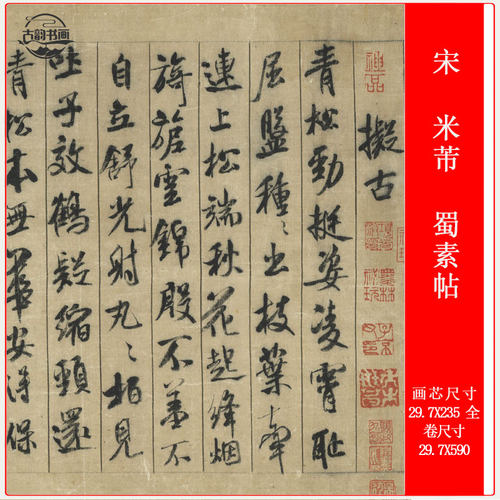 古韵书画
宋 米芾 蜀素帖
画芯尺寸
29.7X235 全
卷尺寸
29.7X590
神品
擬古
青松勁挺姿凌霄恥
屈盤種〻出枝葉牽
連上松端秋花起絳烟
旖旎雲錦殷不羞不
自立舒光射丸〻柏見
吐子效鶴疑縮頸還
青松本無華安得保